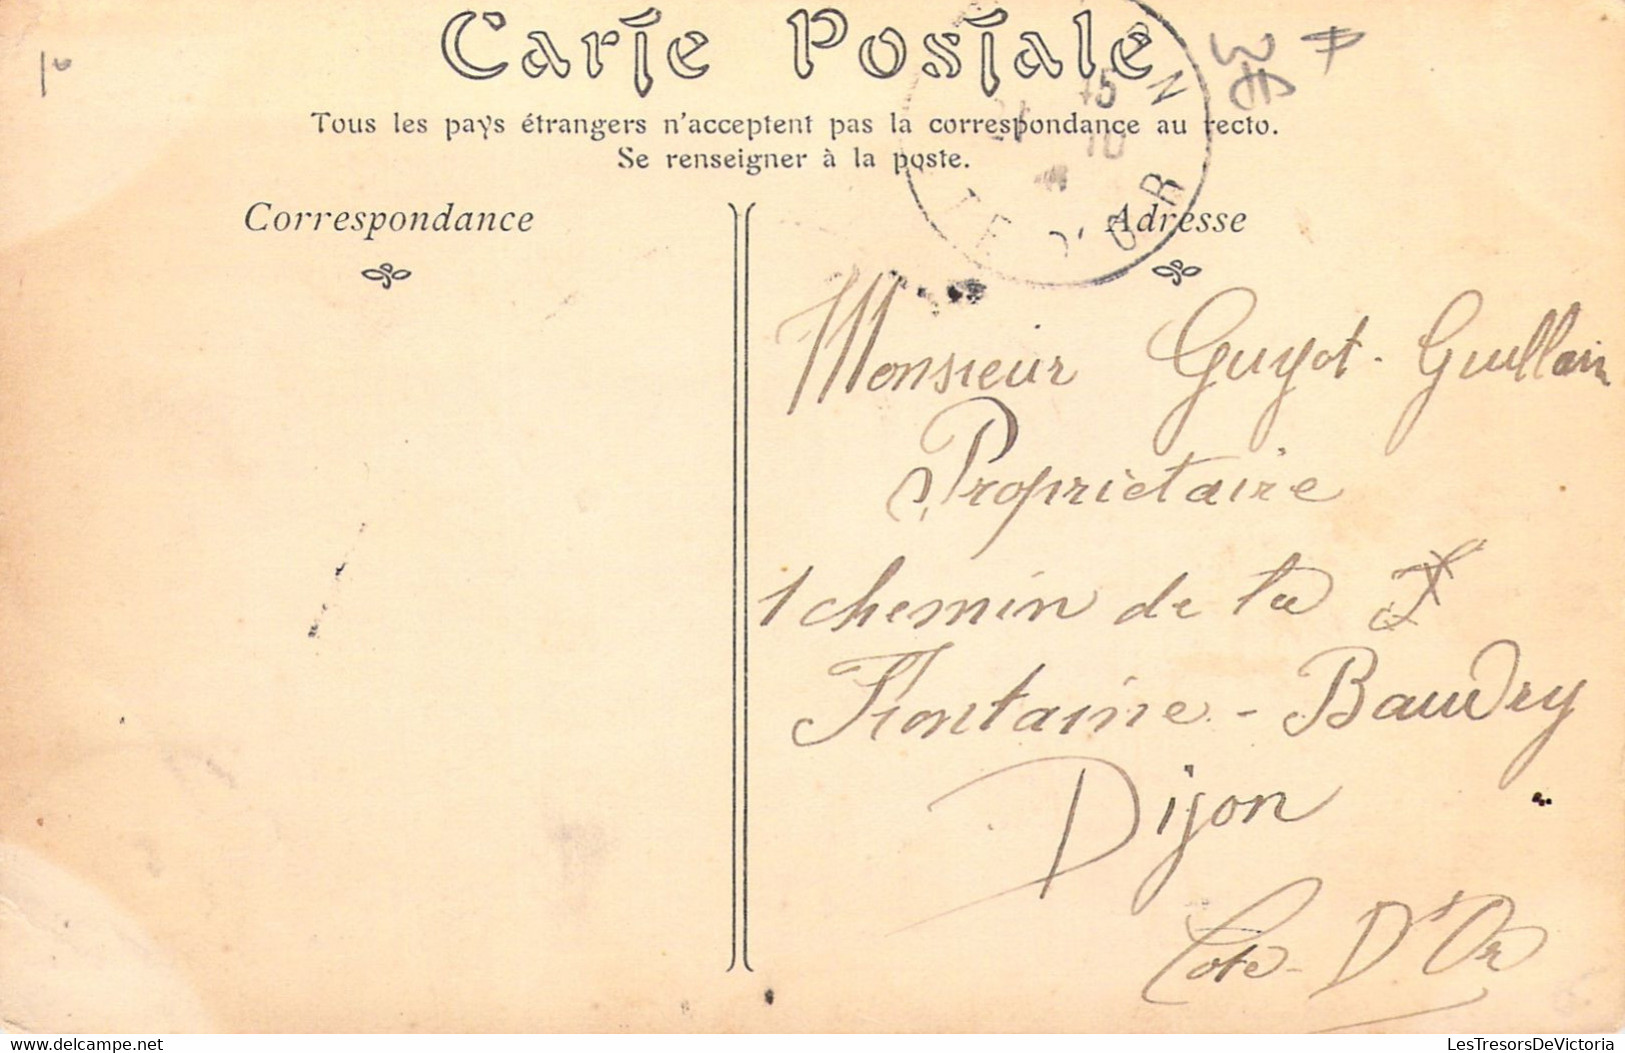 Carte Postale
Tous les pays étrangers n'acceptent pas la correspondance au recto.
Se renseigner à la poste.
Correspondance
Adresse
Monsieur Guyot-Guillain
Propriétaire
1 chemin de la
Fontaine-Baudry
Dijon
Cote-D'Or
LesTresorsDeVictoria
delcampe.net